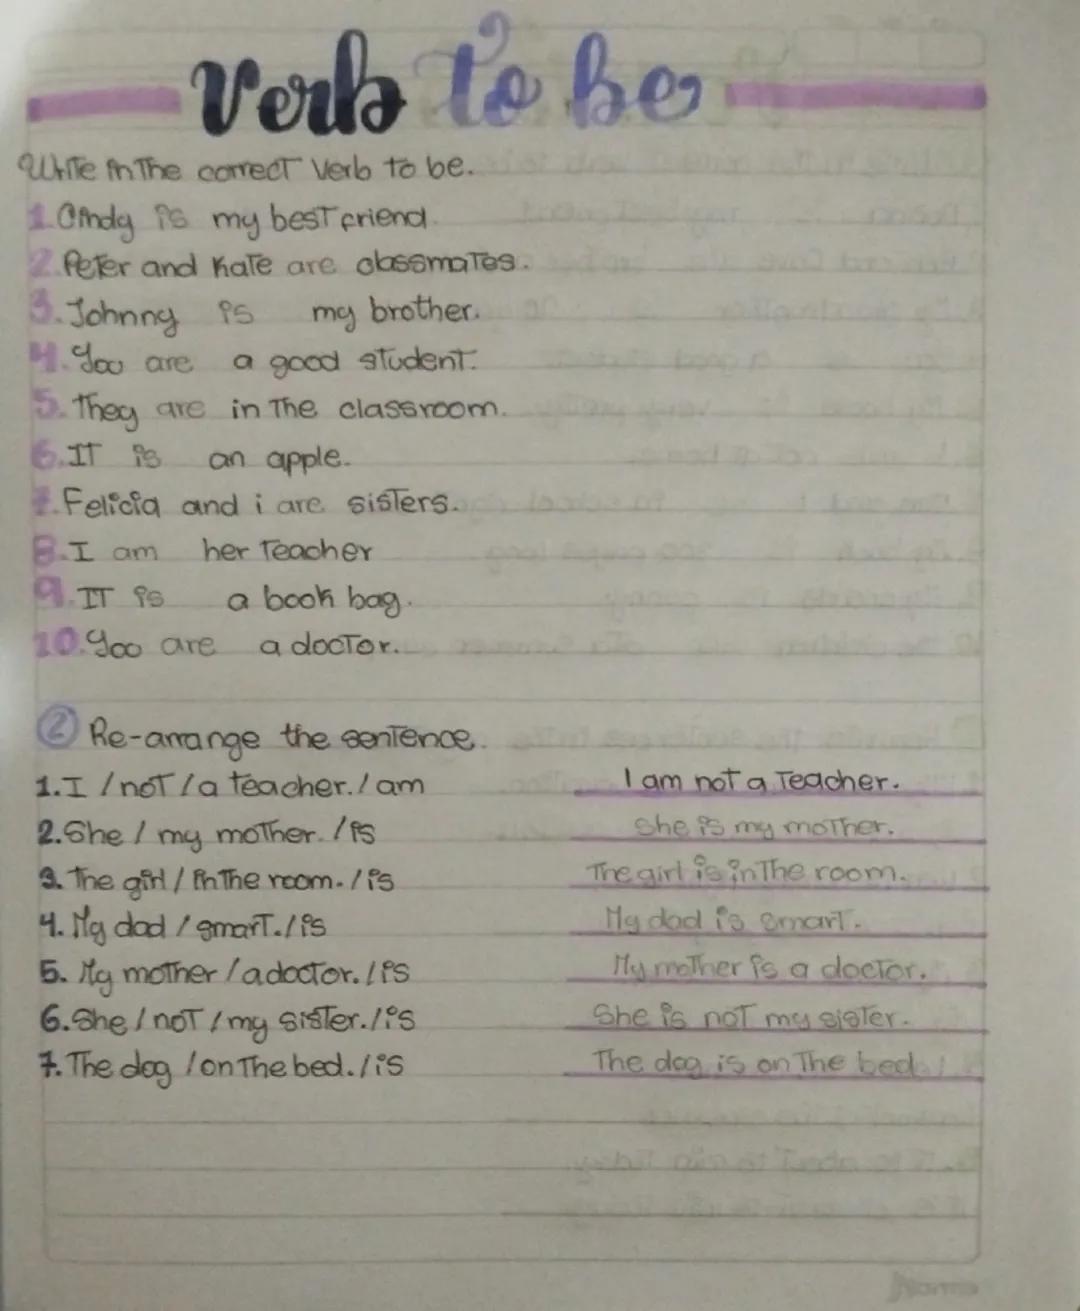 Verb to be
Write in the correct verb to be.
1. Cindy is my best friend.
2. Peter and Kate are classmates.
3. Johnny is my brother.
4. You are a good student.
5. They are in the classroom.
6. It is an apple.
7. Felicia and i are sisters.
8. I am her teacher
9. It is a book bag.
10. You are a doctor.
2 Re-arrange the sentence.
1. I / not / a teacher. / am I am not a teacher.
2. She / my mother. / is She is my mother.
3. The girl / in the room. / is The girl is in the room.
4. My dad / smart. / is My dad is smart.
5. My mother / a doctor. / is My mother is a doctor.
6. She / not / my sister. / is She is not my sister.
7. The dog / on the bed. / is The dog is on the bed.
Norma